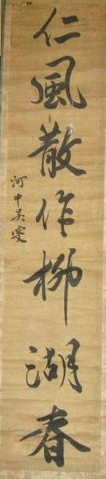 仁風散作柳湖春
河中吳雯